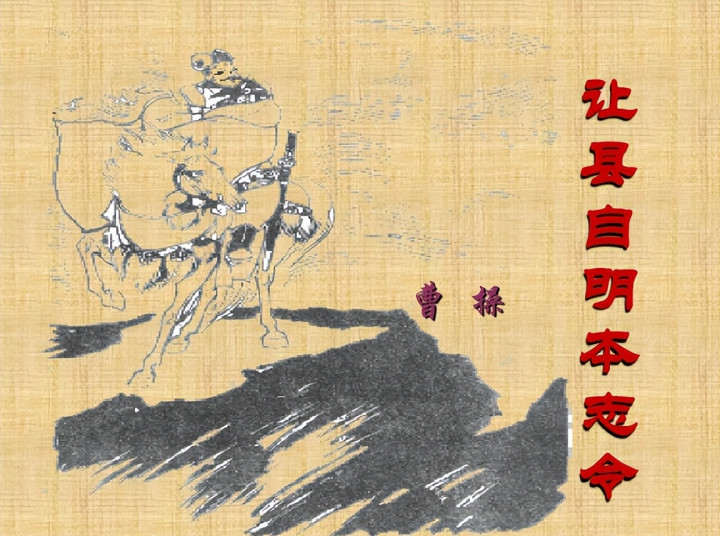 让县自明本志令
曹操